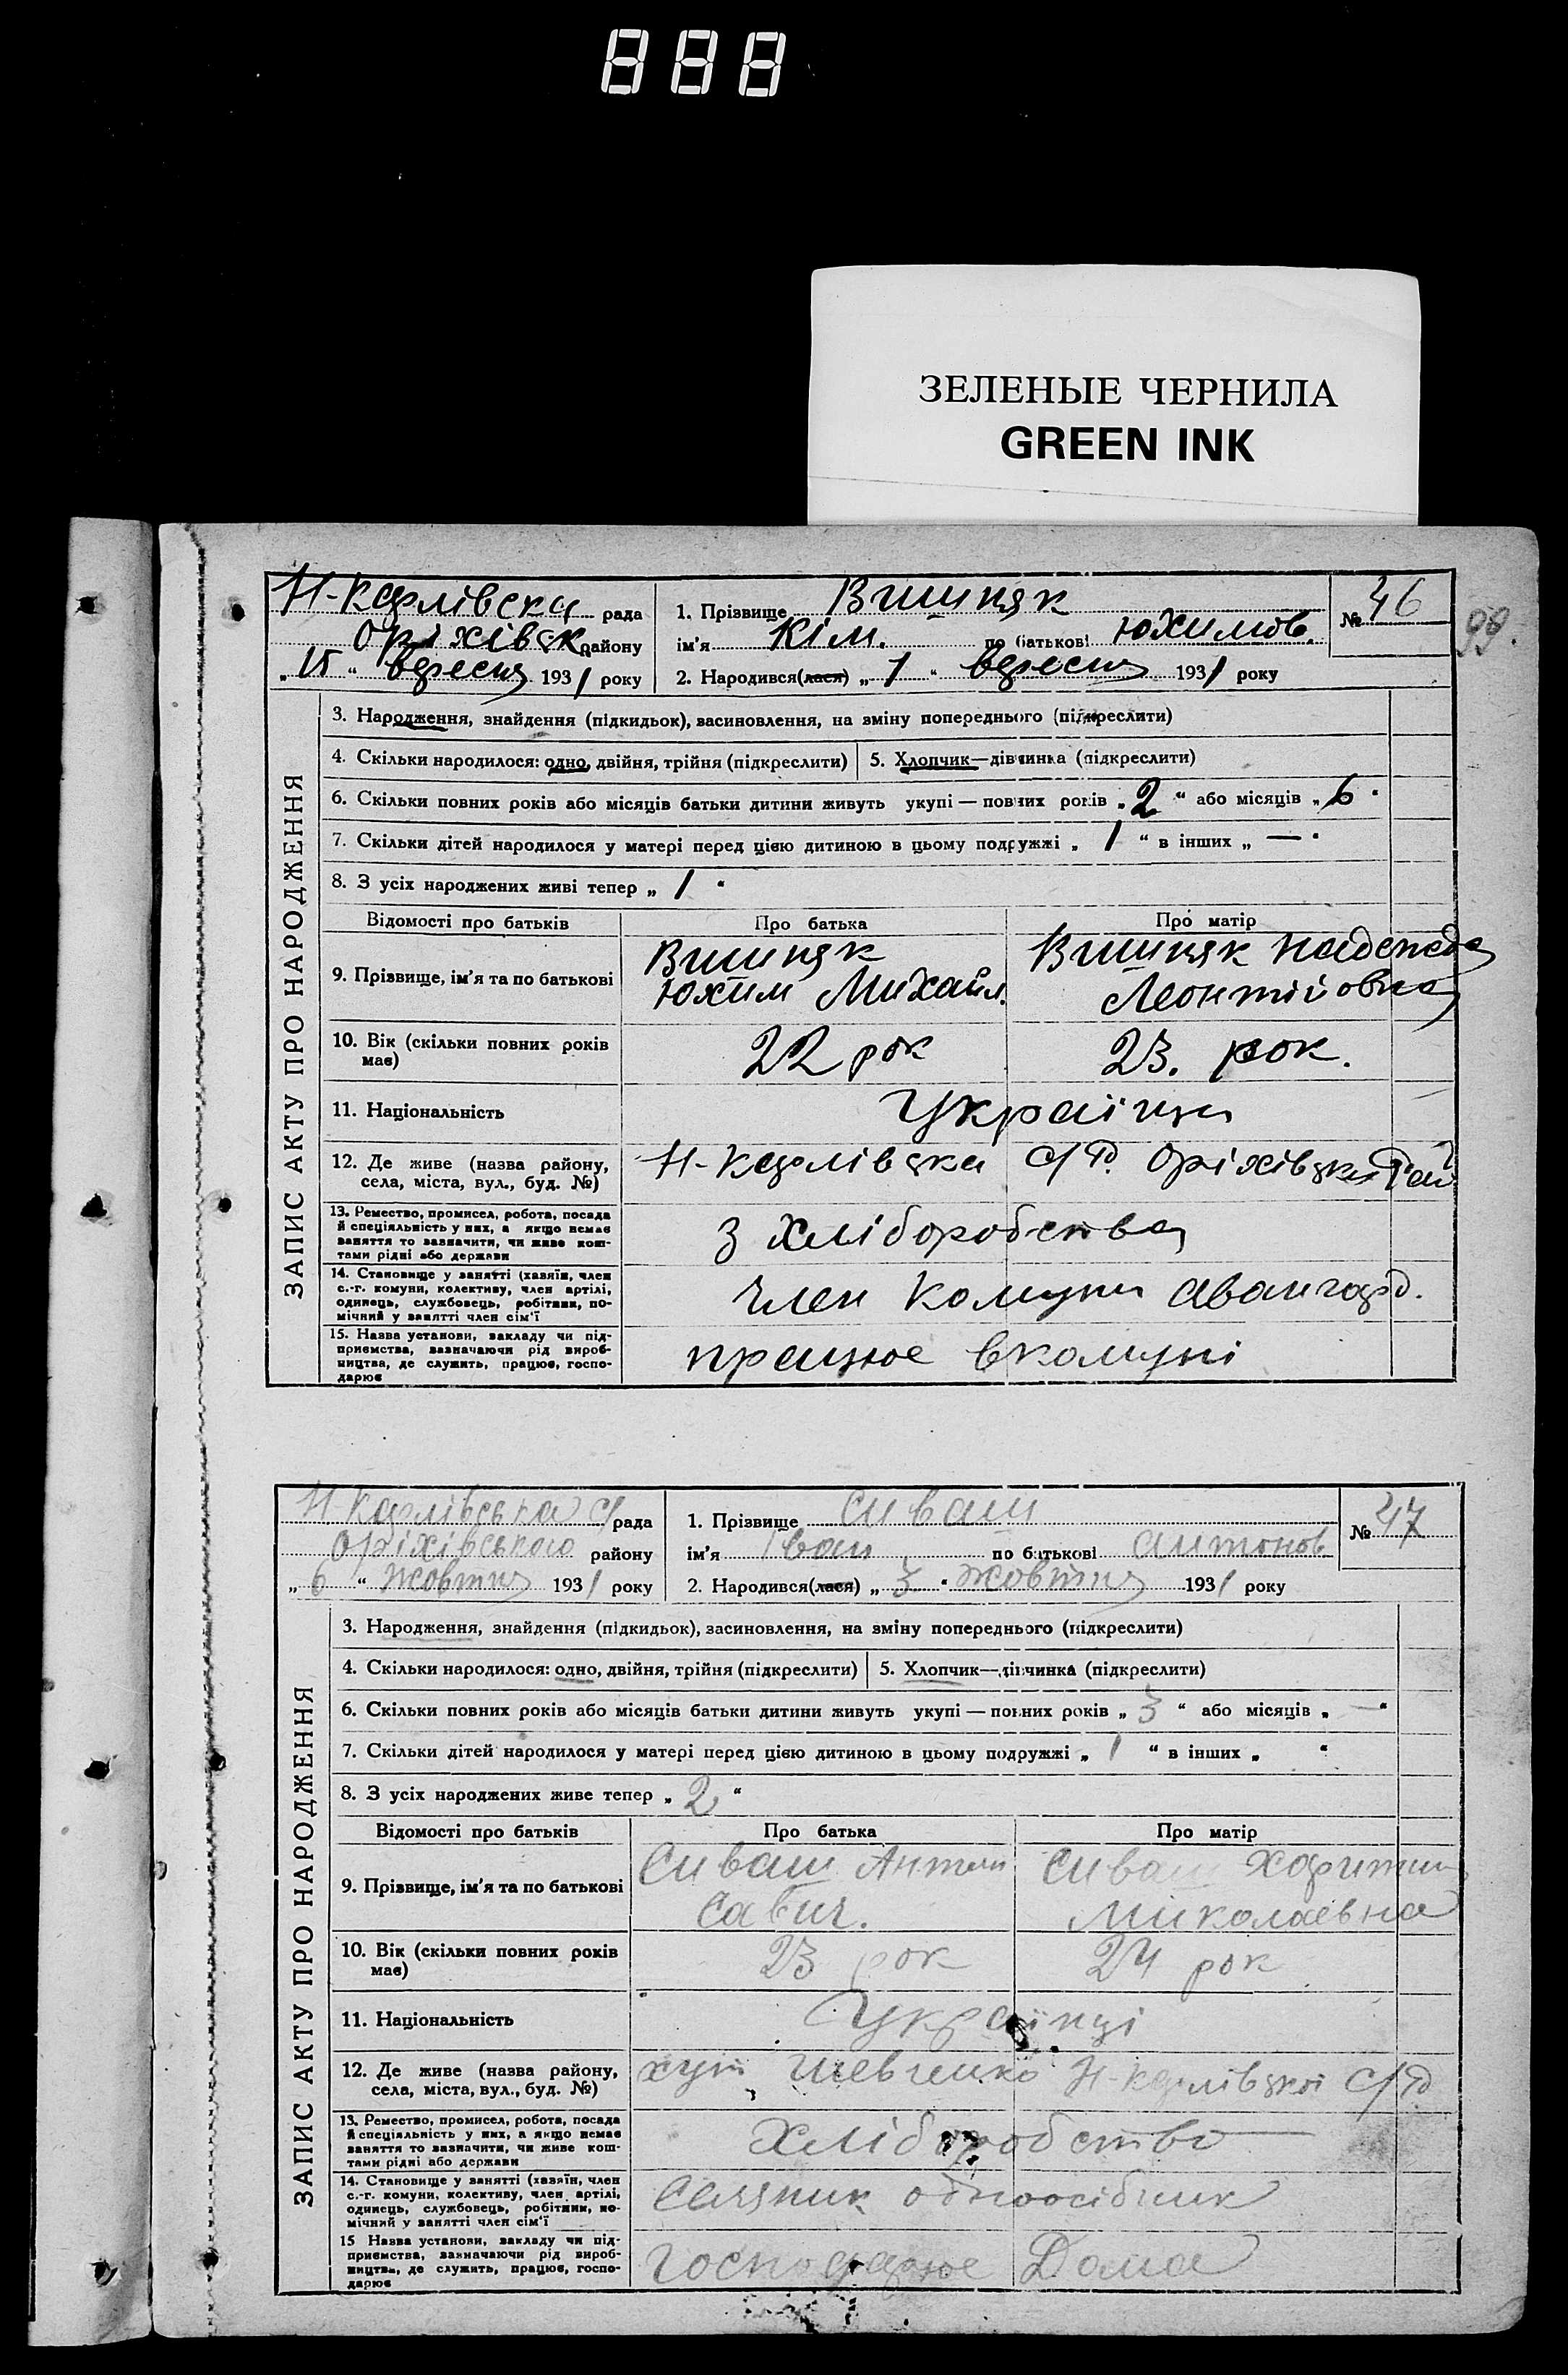 888
ЗЕЛЕНЫЕ ЧЕРНИЛА
GREEN INK
99.
Н-Карлівска рада
Оріхівск району
„15“ Вересня 1931 року
1. Прізвище Вишняк
ім'я Кім. по батькові Юхимов.
2. Народився(лася) „1“ Вересня 1931 року
№ 46
ЗАПИС АКТУ ПРО НАРОДЖЕННЯ
3. Народження, знайдення (підкидьок), васиновлення, на зміну попереднього (підкреслити)
4. Скільки народилося: одно, двійня, трійня (підкреслити) 5. Хлопчик—дівчинка (підкреслити)
6. Скільки повних років або місяців батьки дитини живуть укупі — повних років „2“ або місяців „6“
7. Скільки дітей народилося у матері перед цією дитиною в цьому подружжі „1“ в інших „—“
8. З усіх народжених живі тепер „1“
Відомості про батьків Про батька Про матір
9. Прізвище, ім'я та по батькові
Вишняк
Юхим Михайл.
Вишняк Надежда
Леонтійовна
10. Вік (скільки повних років
має)
22 рок 23. рок.
11. Національність Українци
12. Де живе (назва району,
села, міста, вул., буд. №)
Н-Карлівска С/Р. Оріхівски Рай
13. Ремество, промисел, робота, посада
й спеціяльність у них, а якщо немає
заняття то зазначити, чи живе кош-
тами рідні або держави
З Хліборобства
14. Становище у занятті (хазяїн, член
с.-г. комуни, колективу, член артілі,
одинець, службовець, робітник, по-
мічний у занятті член сім'ї
член Комуни Авангард.
15. Назва установи, закладу чи під-
приємства, зазначаючи рід вироб-
ництва, де служить, працює, госпо-
дарює
працює вкомуні
Н-Карлівська С/рада
Оріхівського району
„6“ Жовтня 1931 року
1. Прізвище Сиваш
ім'я Іван по батькові Антонов
2. Народився(лася) „3“ Жовтня 1931 року
№ 47
ЗАПИС АКТУ ПРО НАРОДЖЕННЯ
3. Народження, знайдення (підкидьок), засиновлення, на зміну попереднього (підкреслити)
4. Скільки народилося: одно, двійня, трійня (підкреслити) 5. Хлопчик—дівчинка (підкреслити)
6. Скільки повних років або місяців батьки дитини живуть укупі — повних років „3“ або місяців „—“
7. Скільки дітей народилося у матері перед цією дитиною в цьому подружжі „1“ в інших „ “
8. З усіх народжених живе тепер „2“
Відомості про батьків Про батька Про матір
9. Прізвище, ім'я та по батькові
Сиваш Антон
Савич.
Сиваш Харитин
Миколаевна
10. Вік (скільки повних років
має)
23 рок 24 рок
11. Національність Українці
12. Де живе (назва району,
села, міста, вул., буд. №)
хут Шевченко Н-Карлівскої С/Р
13. Ремество, промисел, робота, посада
й спеціяльність у них, а якщо немає
заняття то зазначити, чи живе кош-
тами рідні або держави
Хліборобство
14. Становище у занятті (хазяїн, член
с.-г. комуни, колективу, член артілі,
одинець, службовець, робітник, по-
мічний у занятті член сім'ї
одноосібник
15 Назва установи, закладу чи під-
приємства, зазначаючи рід вироб-
ництва, де служить, працює, госпо-
дарює
Господарює Дома